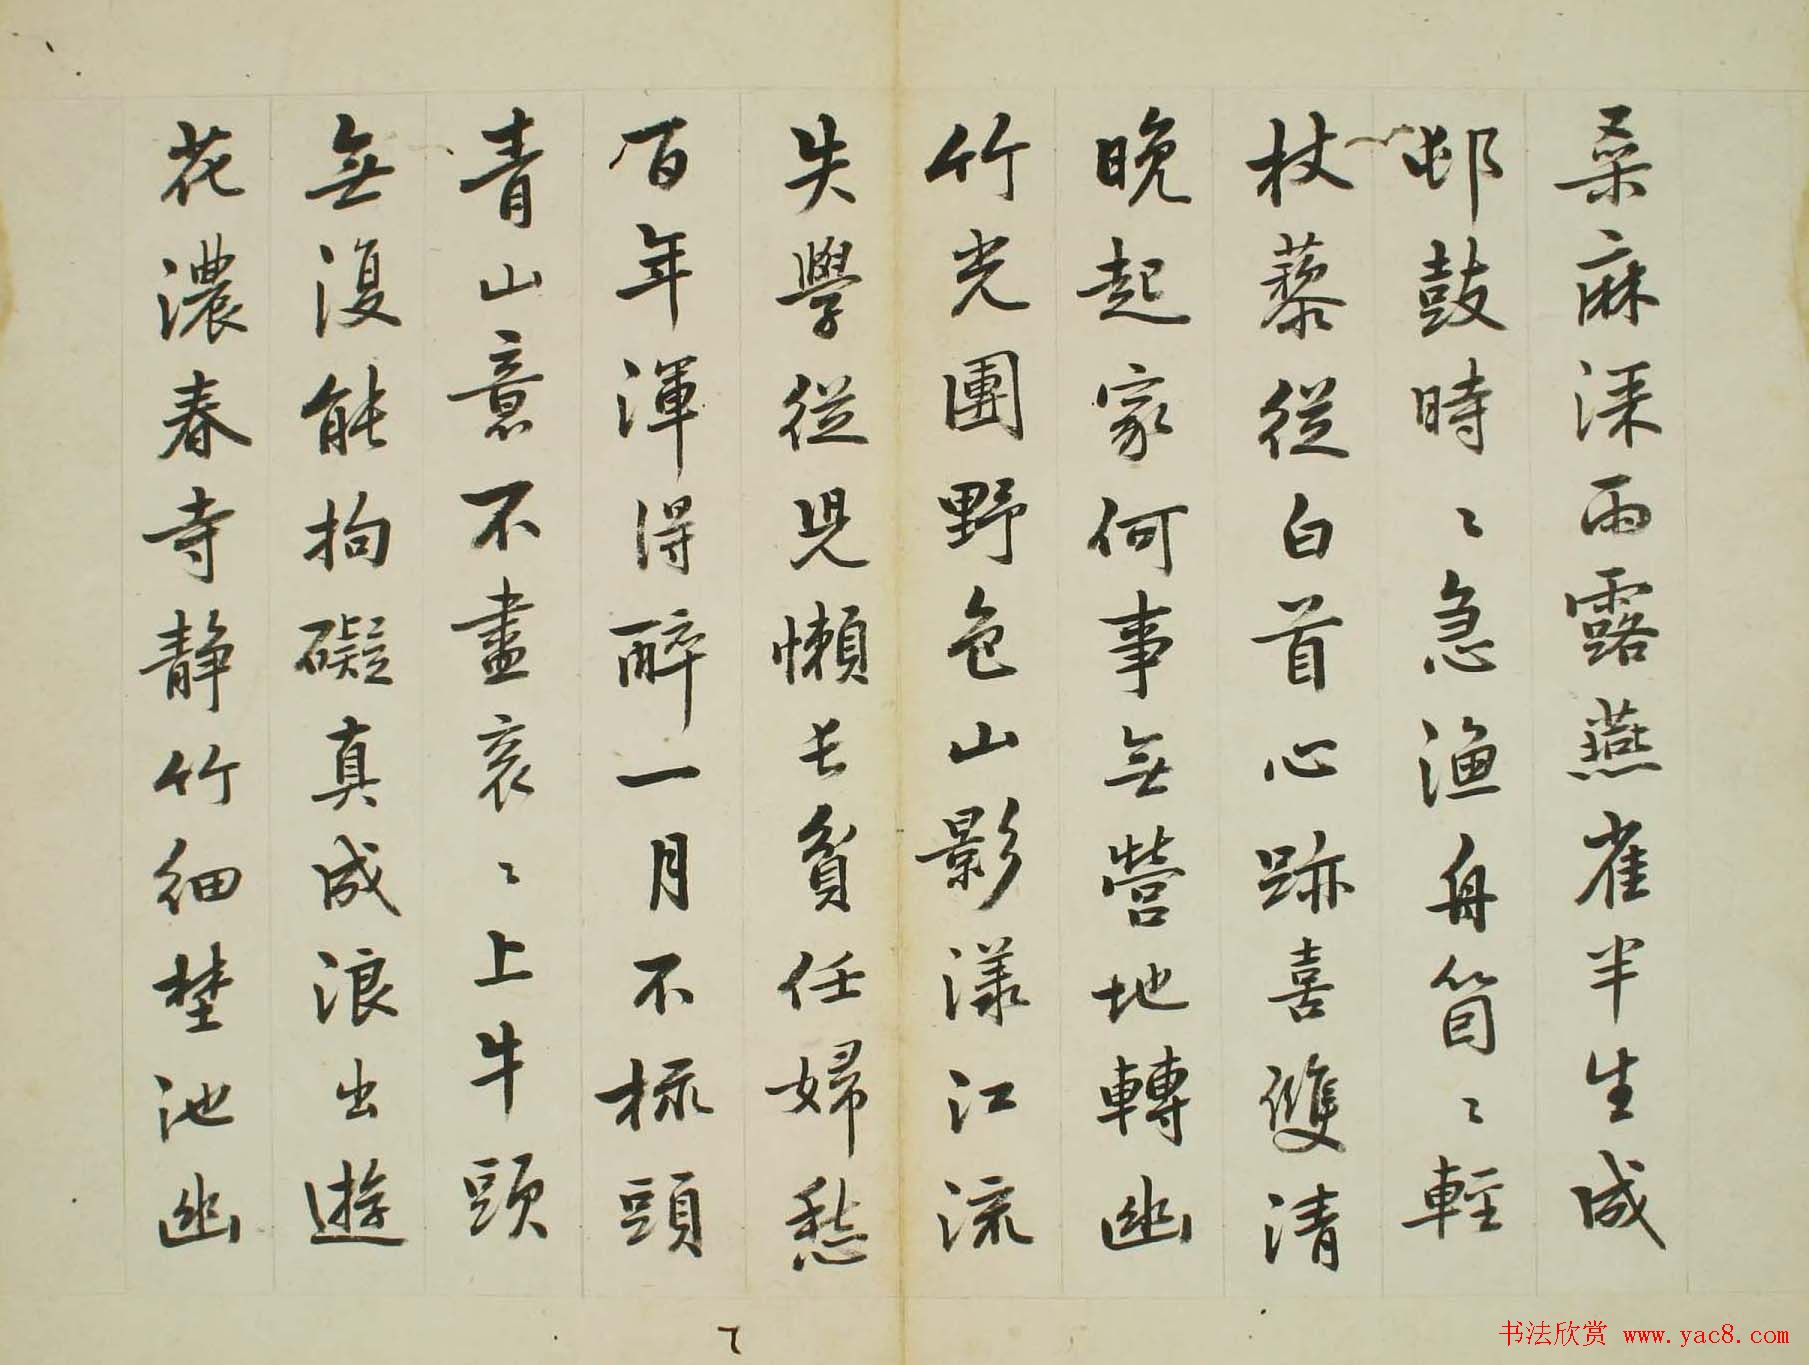 桑麻深雨露燕雀半生成
邨鼓時〻急漁舟箇〻輕
杖藜從白首心跡喜雙清
晚起家何事無營地轉幽
竹光團野色山影漾江流
失學從兒懶長貧任婦愁
百年渾得醉一月不梳頭
青山意不盡袞〻上牛頭
無復能拘礙真成浪出遊
花濃春寺靜竹細埜池幽
书法欣赏 www.yac8.com